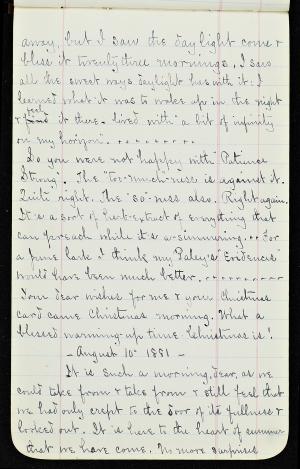 away, but I saw the daylight come &
bless it twenty three mornings. I saw
all the sweet ways daylight has with it. I
learned what it was to wake up in the night
& feel it there - lived with "a bit of infinity
on my horizon". . . . . . . . . .
So you were not happy with "Patience
Strong". The "too-much"-ness is against it.
Quite right. The "so"-ness also. Right again.
It is a sort of beef-extract of everything that
can preach while it's a-simmering. . . For
a pure lark I think my Paley's "Evidences"
would have been much better. . . . . . . . . .
Your dear wishes for me & your Christmas
card came Christmas morning. What a
blessed warming-up time Christmas is!
- August 10th 1881 -
It is such a morning, dear, as we
could take from & take from & still feel that
we had only crept to the door of its fullness &
looked out. It is here to the heart of summer
that we have come. No more surprises